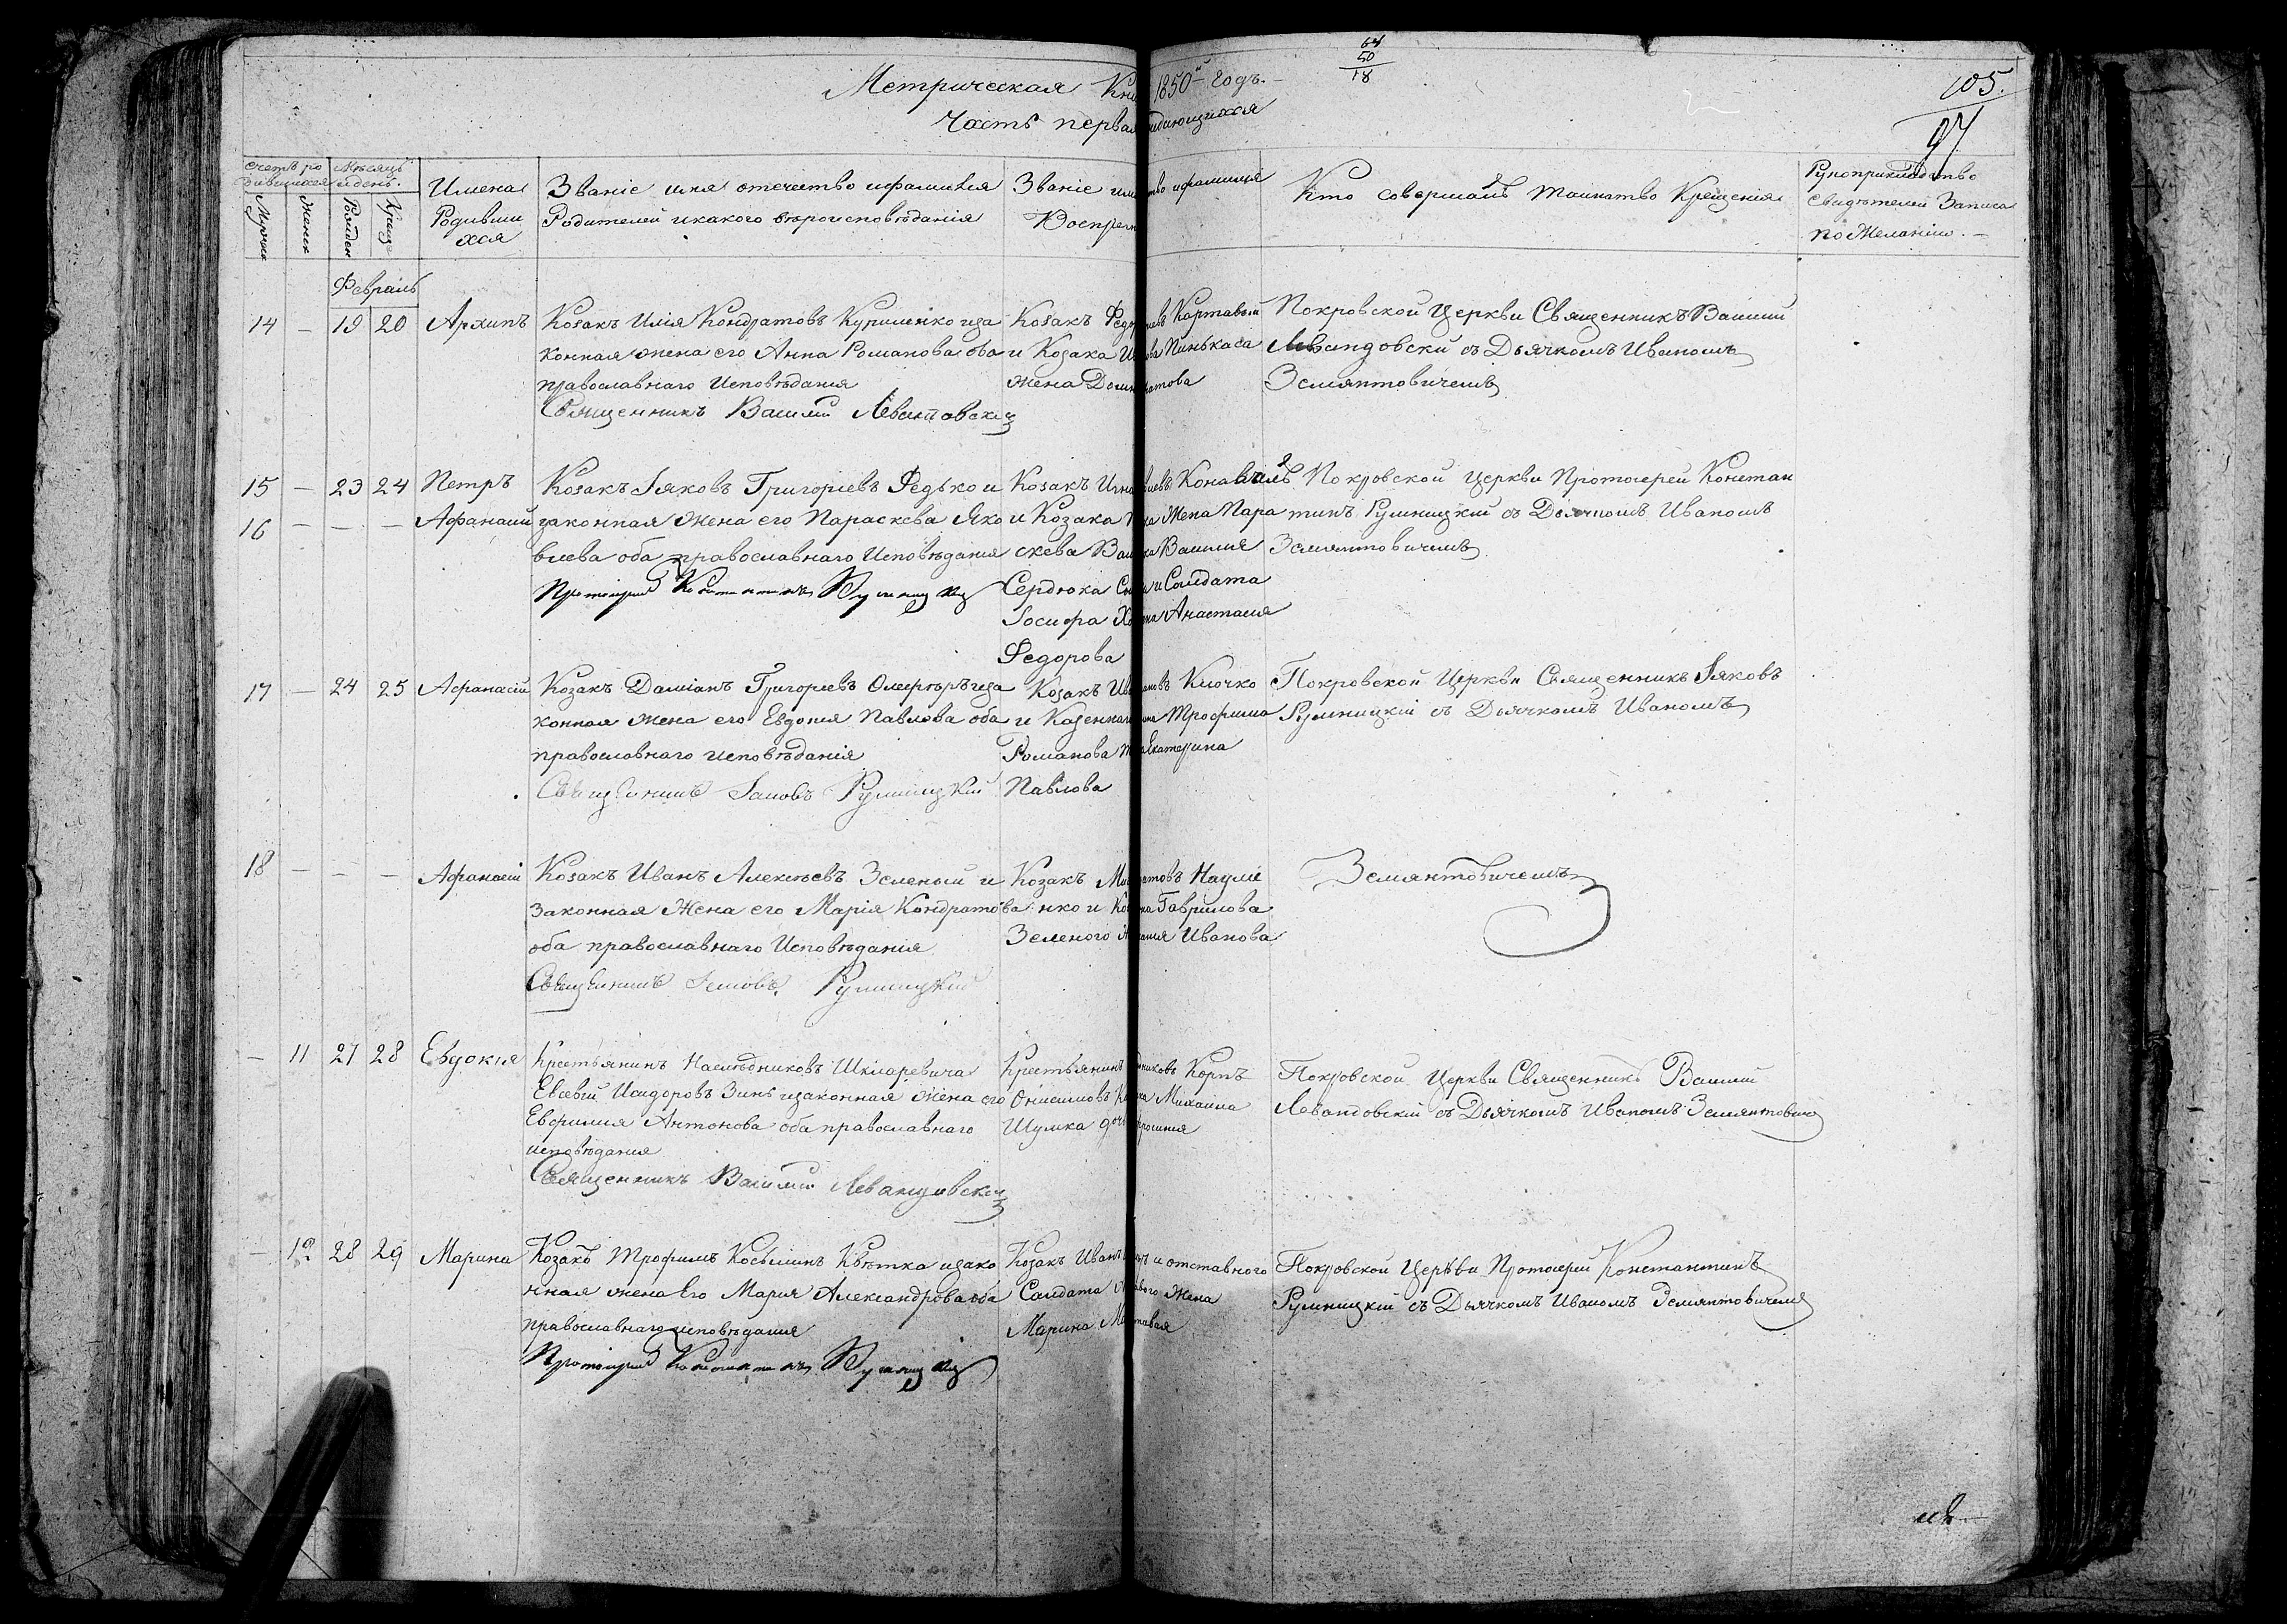 64
50
18
105.
97
Метрическая Кни 1850 годъ.
Часть первая
счетъ ро
дившихся
Мѣсяцъ
и день.
Мужск
Женск
Рожден
Крещ
Имена
Родивши
хся
Званіе имя отечество ифамилія
Родителей икакого вѣроисповѣданія
Званіе им тво ифамилія
Воспрем
Кто совершалъ таинство Крещенія
Рукоприкладство
Свидѣтелей Записи
по Желанію.
Февраль
14 – 19 20 Архипъ
Козакъ Илія Кондратовъ Куриленко иза
конная жена его Анна Романова оба
православнаго Исповѣданія
Священникъ Василій Левандовскій
Козакъ Федо евъ Картавый
и Козака И ва Пинькаса
жена Домн атова
Покровской Церкви Священникъ Василій
Левандовскій съ Дьячкомъ Иваномъ
Земянтовичемъ
15 – 23 24 Петръ
16 – – – Афанасій
Козакъ Іяковъ Григоріевъ Федько и
законная жена его Параскева Яко
влева оба православнаго Исповѣданія
Протоіерей Константинъ Румницкій
Козакъ Игна
и Козака жена Пара
скева Ва Василія
Сердюка Со и Солдата
Іосифа на Анастасія
Федорова
Покровской Церкви Протоіерей Констан
тинъ Румницкій съ Дьячкомъ Иваномъ
Земянтовичемъ
17 – 24 25 Афанасій
Козакъ Даміанъ Григоріевъ иза
конная жена его Евдокия Павлова оба
православнаго исповѣданія
Священникъ Іаковъ Румницкій
Козакъ Ив ановъ Клочко
и Казеннаг Трофима
Романова Екатерина
Павлова
Покровской Церкви Священникъ Іяковъ
Румницкій съ Дьячкомъ Иваномъ
18 – – – Афанасій
Козакъ Иванъ Алексѣевъ Зеленый и
Законная Жена его Марія Кондратова
оба православнаго Исповѣданія
Священникъ Іаковъ Румницкій
Козакъ Ми атовъ Науме
нко и Ко Гаврилова
Зеленого Иванова
Земянтовичемъ
– 11 27 28 Евдокия
Крестьянинъ Наслѣдниковъ Шкляревича
Евсевій Исидоровъ Зинь изаконная жена его
Евфимия Антонова оба православнаго
исповѣдания
Священникъ Василій Левандовскій
Крестьянинъ дниковъ Корпъ
Онисимовъ Ко ка Михаила
Шулика дочь
Покровской Церкви Священникъ Василій
Левандовскій съ Дьячкомъ Иваномъ Земянтовичемъ
– 12 28 29 Марина
Козакъ Трофимъ Косьминъ Квѣтка изако
нная жена Его Мария Александрова оба
православнаго исповѣдания
Протоіерей Константинъ Румницкій
Козакъ Иванъ и отставного
Солдата жена
Марина Ма
Покровской Церкви Протоіерей Константинъ
Румницкій съ Дьячкомъ Иваномъ Земянтовичемъ